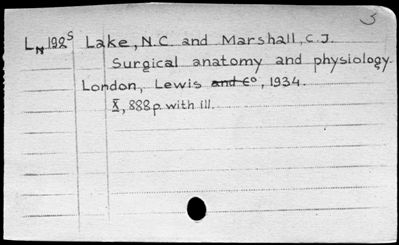 5
LN 192S Lake, N.C. and Marshall, C.J.
Surgical anatomy and physiology.
London, Lewis and Co, 1934.
X, 888 p. with ill.